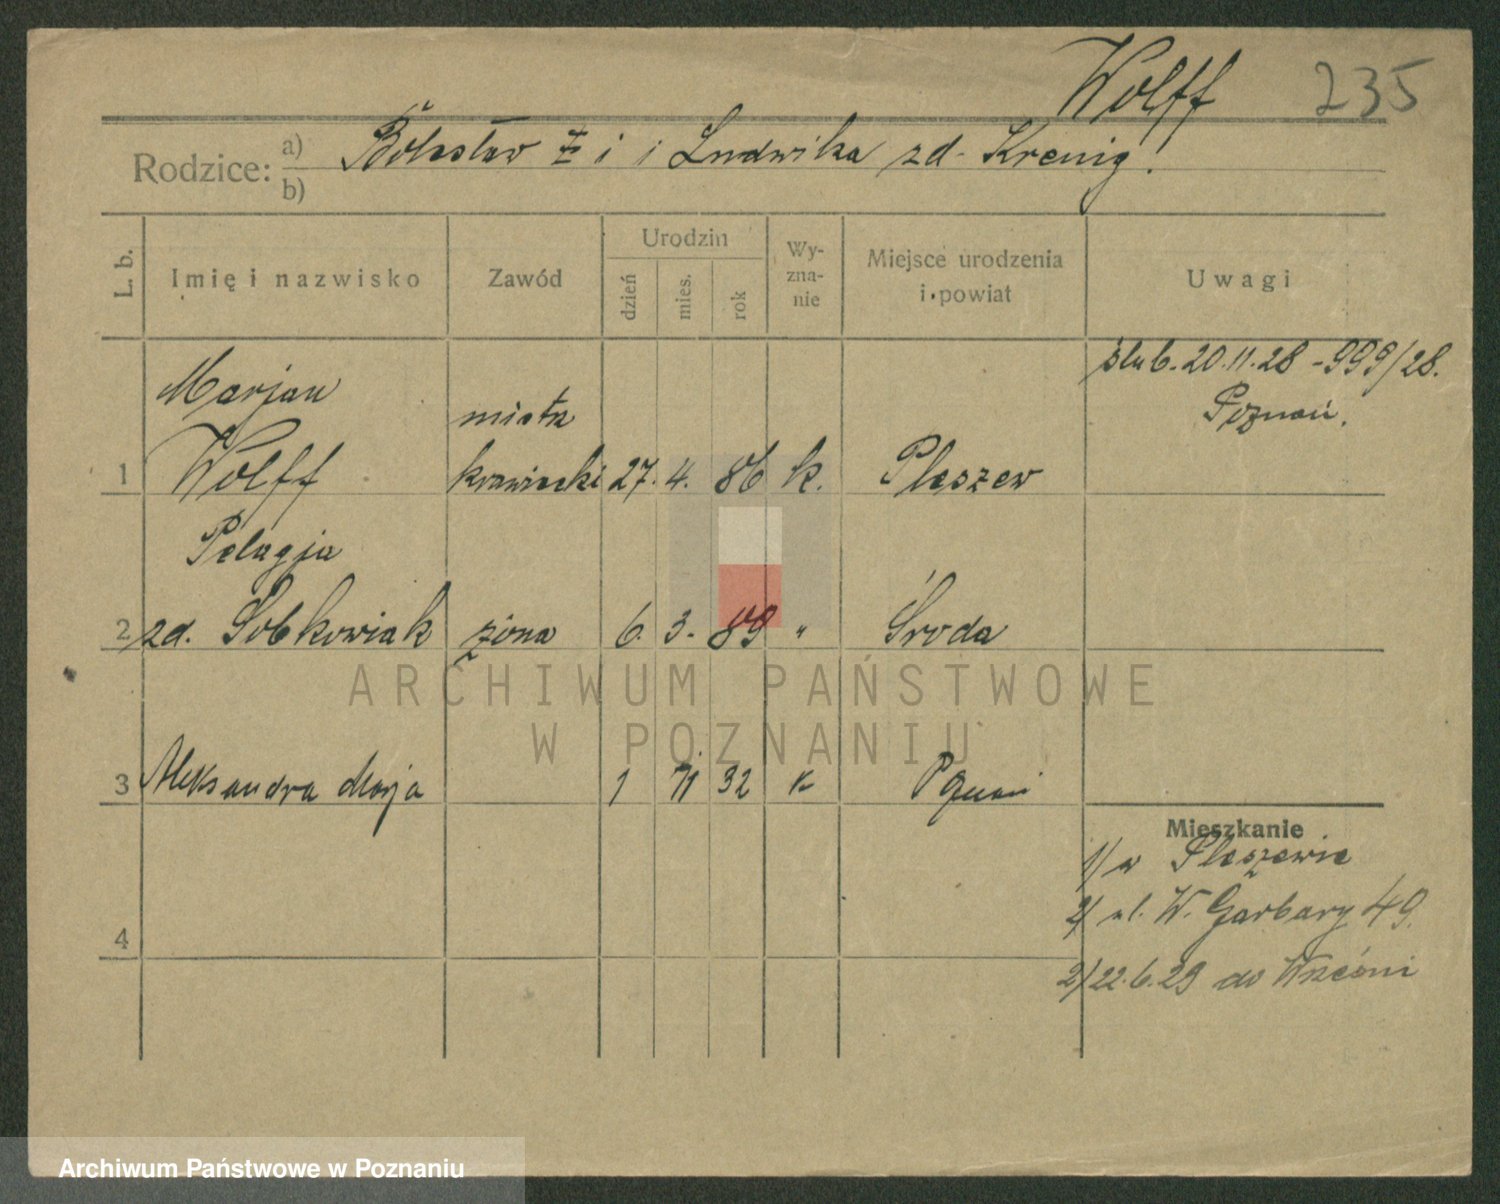 Wolff 235
Rodzice: a) Bolesław i Ludwika zd. Krenig.
b)
L. b. Imię i nazwisko Zawód Urodzin dzień mies. rok Wy-zna-nie Miejsce urodzenia i powiat Uwagi
Marjan ślub. 20.11.28 - 999/28.
Poznań.
1 Wolff krawiecki 27. 4. 86 k. Pleszew
Pelagja
2 zd. Sobkowiak żona 6. 3. 89 " Środa
ARCHIWUM PAŃSTWOWE
W POZNANIU
3 Aleksandra Marja 1 32 k Poznań
Mieszkanie
1/ w Pleszewie
2/ ul. W. Garbary 49.
4
2/ 22.6.29 do Wrześni
Archiwum Państwowe w Poznaniu